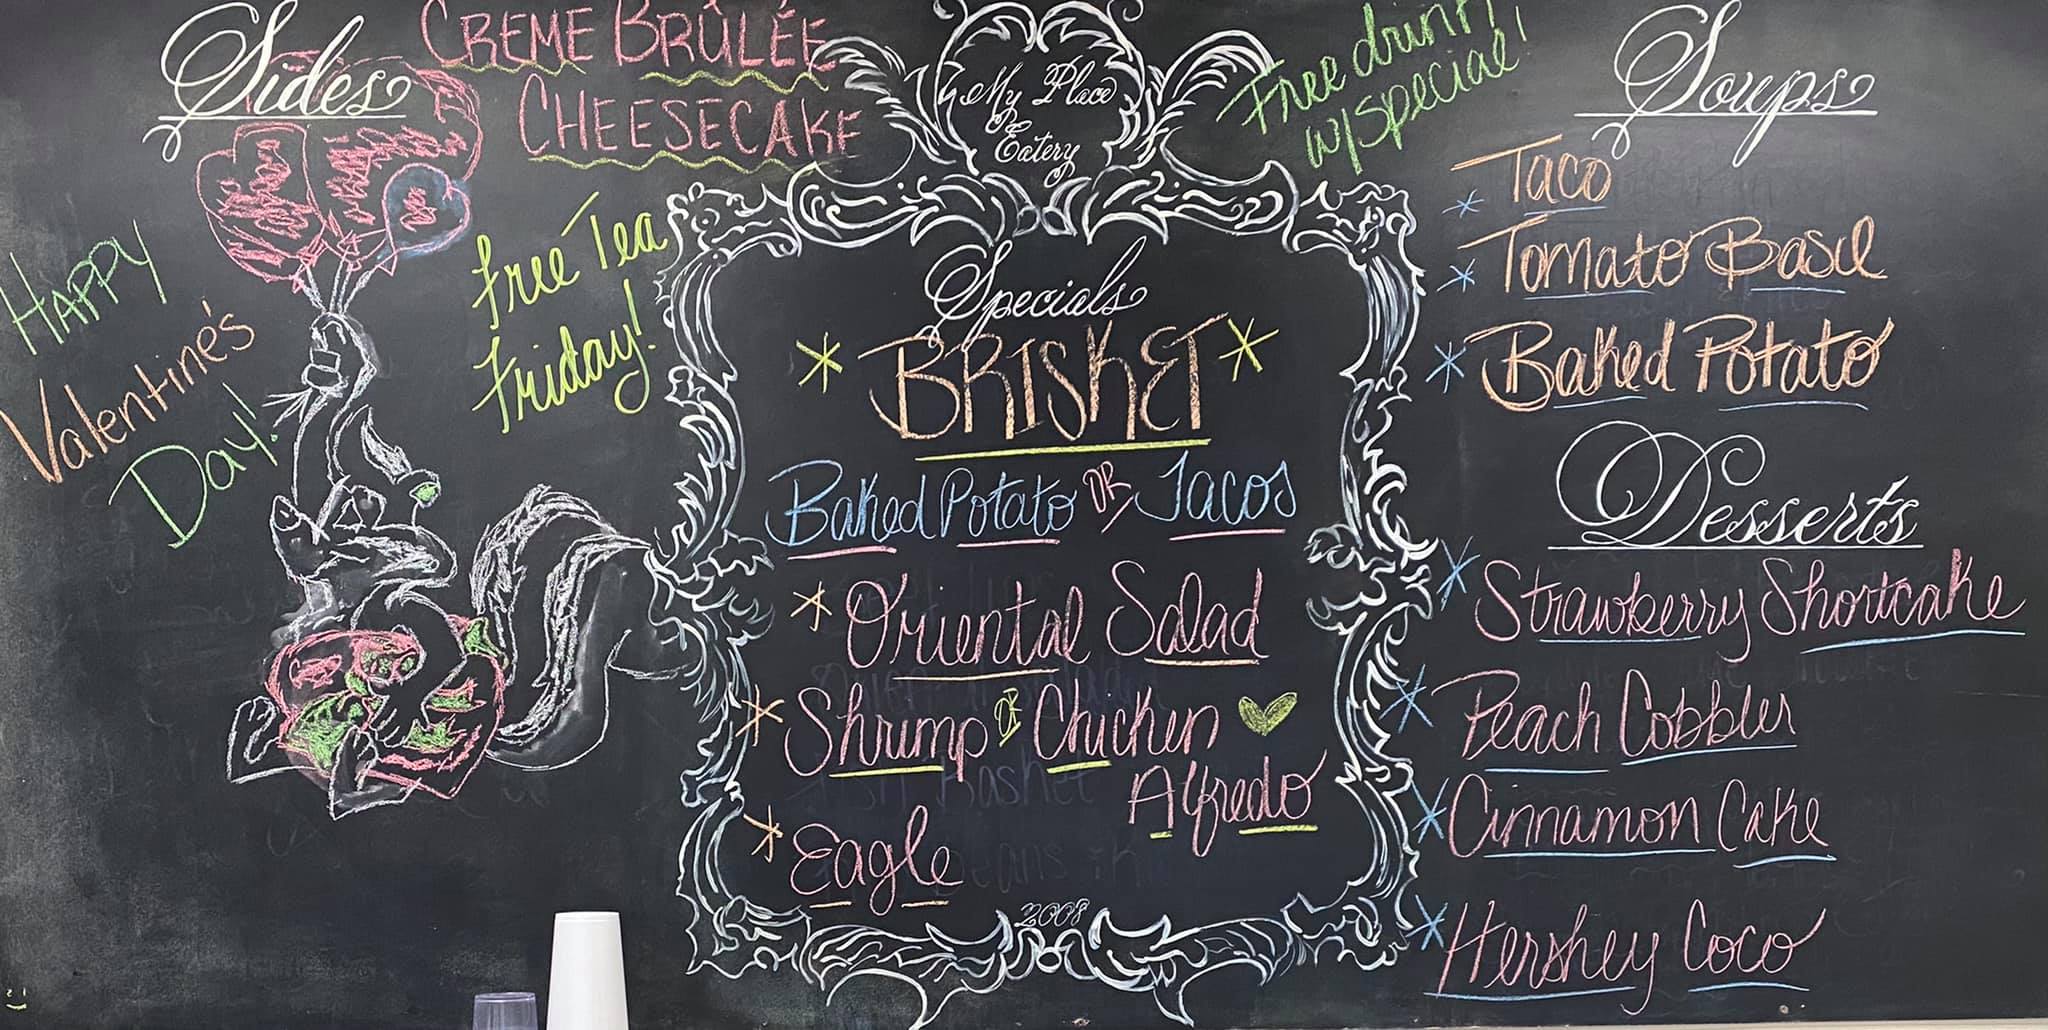 Sides
CREME BRÛLÉE
CHEESECAKE
HAPPY
Valentine's
Day!
Free Tea
Friday!
My Place
Eatery
Free drink
w/special!
Specials
BRISKET
Baked Potato OR Tacos
Oriental Salad
Shrimp OR Chicken
Alfredo
Eagle
2008
Soups
Taco
Tomato Basil
Baked Potato
Desserts
Strawberry Shortcake
Peach Cobbler
Cinnamon Cake
Hershey Coco